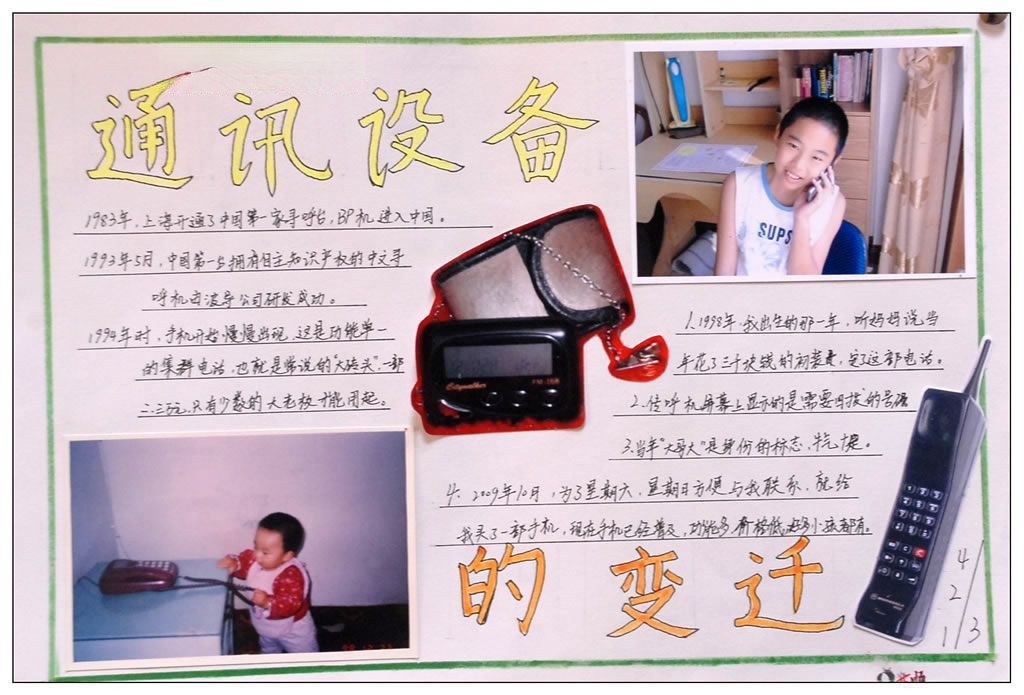 通讯设备
1983年,上海开通了中国第一家寻呼台,BP机进入中国。
1993年5月,中国第一台拥有自主知识产权的中文寻
呼机由波导公司研发成功。
1994年时,手机开始慢慢出现,这是功能单一
的集群电话,也就是常说的“大砖头”,一部
二、三万元,只有少数的大老板才能用起。
SUPS
1.1998年,我出生的那一年,听妈妈说当
年花了三千块钱的初装费,安了这部电话。
2.传呼机屏幕上显示的是需要回拨的号码
3.当年“大哥大”是身份的标志,牛气
4.2009年10月,为了星期六、星期日方便与我联系,就给
我买了一部手机,现在手机已经普及,功能多,价格低,好多小孩都有。
Citywalker
FM-168
的变迁
4
2
1/3